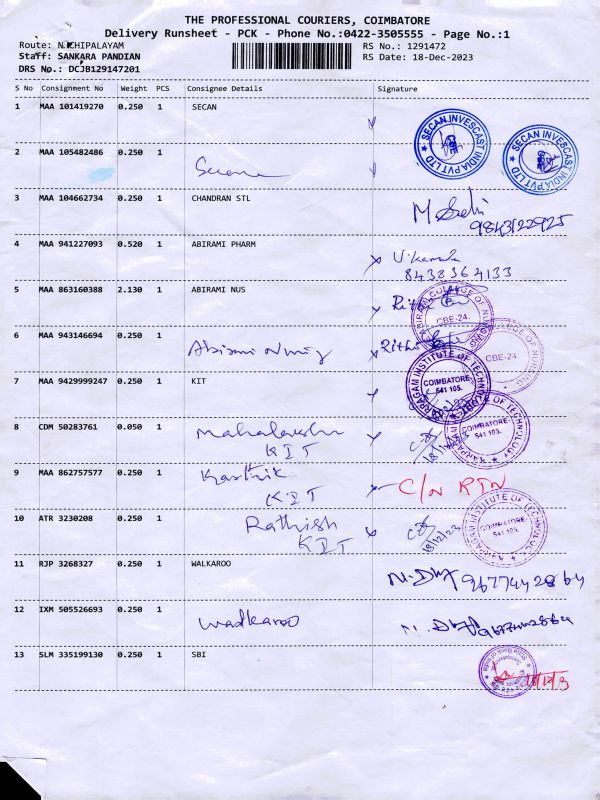 THE PROFESSIONAL COURIERS, COIMBATORE
Delivery Runsheet - PCK - Phone No.:0422-3505555 - Page No.:1
Route: N.ICHIPALAYAM
RS No.: 1291472
Staff: SANKARA PANDIAN
RS Date: 18-Dec-2023
DRS No.: DCJB129147201
S No Consignment No Weight PCS Consignee Details Signature
1 MAA 101419270 0.250 1 SECAN
SECAN INVESCAST INDIA PVT LTD
SECAN INVESCAST INDIA PVT LTD
2 MAA 105482486 0.250 1
3 MAA 104662734 0.250 1 CHANDRAN STL
9843122925
4 MAA 941227093 0.520 1 ABIRAMI PHARM
8438364133
5 MAA 863160388 2.130 1 ABIRAMI NUS
CBE-24.
6 MAA 943146694 0.250 1
COLLEGE OF NURSING
CBE-24
7 MAA 9429999247 0.250 1 KIT
KARPAGAM INSTITUTE OF TECHNOLOGY
COIMBATORE
641 105.
8 CDM 50283761 0.050 1 Mahalakshmi
KIT
KARPAGAM INSTITUTE OF TECHNOLOGY
COIMBATORE
641 105.
9 MAA 862757577 0.250 1 Karthik
KIT
C/N RTN
10 ATR 3230208 0.250 1 Rathish
KIT
18/12/23
KARPAGAM INSTITUTE OF TECHNOLOGY
COIMBATORE
641 105.
11 RJP 3268327 0.250 1 WALKAROO
9677442864
12 IXM 505526693 0.250 1 Walkaroo
9677442864
13 SLM 335199130 0.250 1 SBI